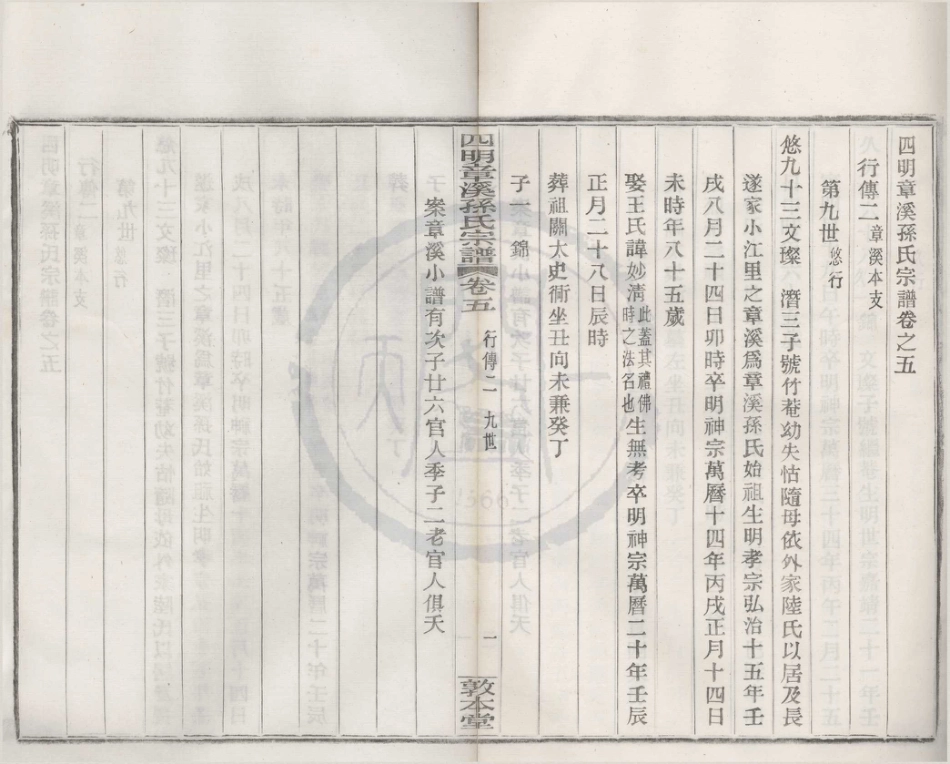 四明章溪孫氏宗譜卷之五
行傳二章溪本支
第九世悠行
悠九十三文璨 濳三子號竹菴幼失怙隨母依外家陸氏以居及長
遂家小江里之章溪爲章溪孫氏始祖生明孝宗弘治十五年壬
戌八月二十四日卯時卒明神宗萬曆十四年丙戌正月十四日
未時年八十五歲
娶王氏諱妙淸此蓋其禮佛時之法名也生無考卒明神宗萬曆二十年壬辰
正月二十八日辰時
葬祖關太史衕坐丑向未兼癸丁
子一錦
四明章溪孫氏宗譜 卷五 行傳二 九世 一 敦本堂
案章溪小譜有次子廿六官人季子二老官人俱夭